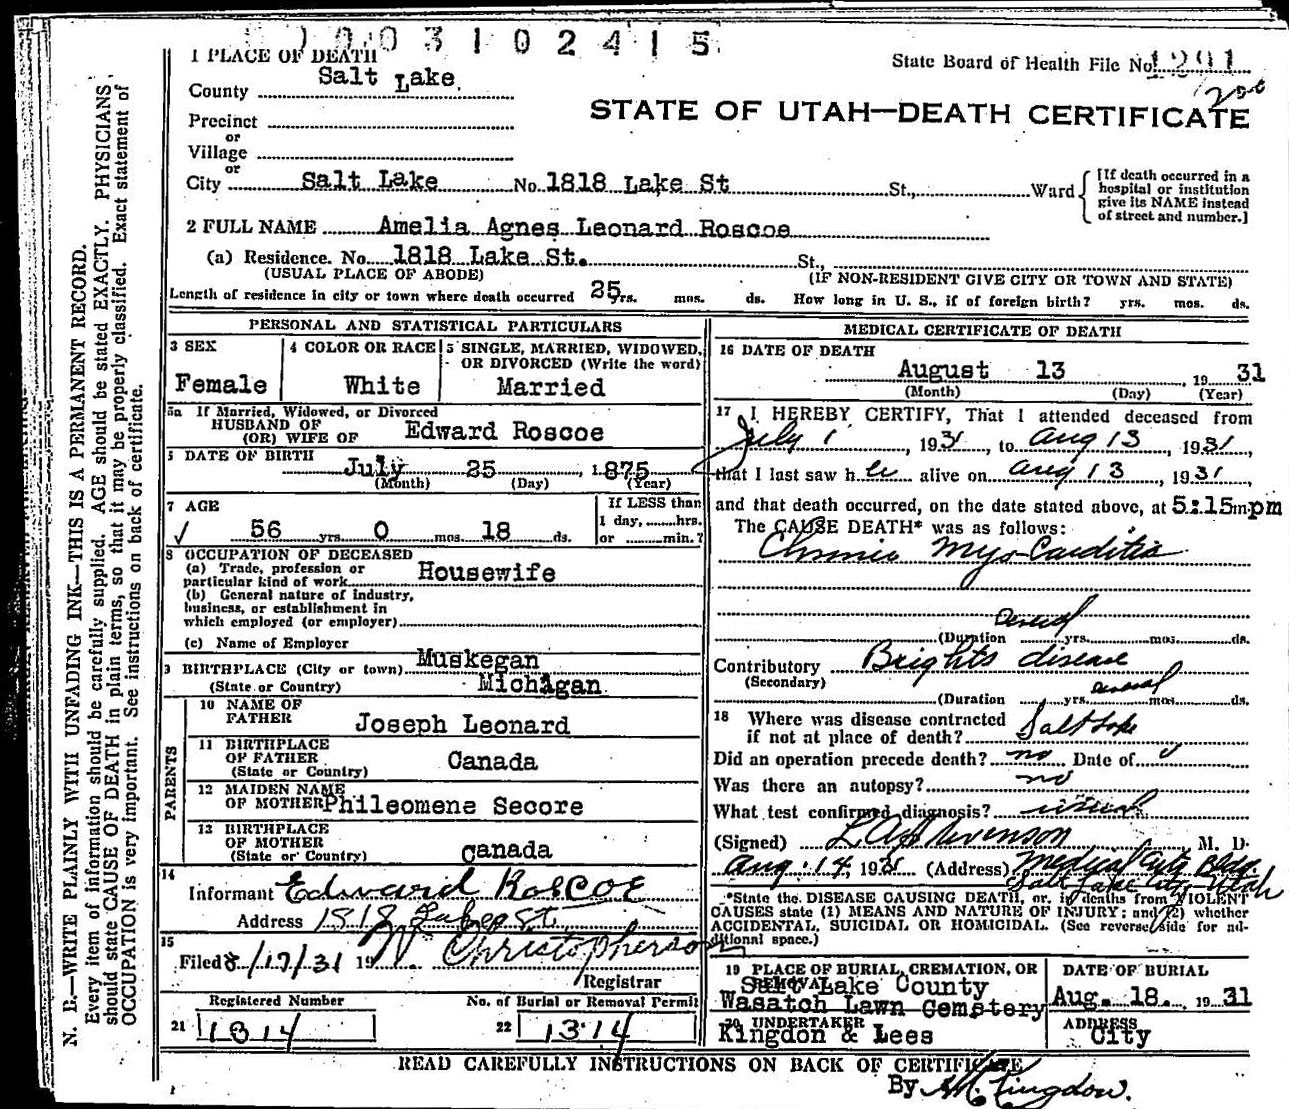 0003102415
1 PLACE OF DEATH
State Board of Health File No. 1291
County Salt Lake.
200
STATE OF UTAH—DEATH CERTIFICATE
Precinct
or
Village
or
City Salt Lake No. 1818 Lake St St., Ward
[If death occurred in a hospital or institution give its NAME instead of street and number.]
2 FULL NAME Amelia Agnes Leonard Roscoe
(a) Residence. No. 1818 Lake St. St.,
(USUAL PLACE OF ABODE) (IF NON-RESIDENT GIVE CITY OR TOWN AND STATE)
Length of residence in city or town where death occurred 25 yrs. mos. ds. How long in U. S., if of foreign birth? yrs. mos. ds.
PERSONAL AND STATISTICAL PARTICULARS
3 SEX
Female
4 COLOR OR RACE
White
5 SINGLE, MARRIED, WIDOWED,
OR DIVORCED (Write the word)
Married
5a If Married, Widowed, or Divorced
HUSBAND OF
(OR) WIFE OF Edward Roscoe
6 DATE OF BIRTH
July 25, 1875
(Month) (Day) (Year)
7 AGE
56 yrs. 0 mos. 18 ds.
If LESS than
1 day, hrs.
or min.?
8 OCCUPATION OF DECEASED
(a) Trade, profession or
particular kind of work Housewife
(b) General nature of industry,
business, or establishment in
which employed (or employer)
(c) Name of Employer
9 BIRTHPLACE (City or town) Muskegan
(State or Country) Michigan
PARENTS
10 NAME OF
FATHER Joseph Leonard
11 BIRTHPLACE
OF FATHER Canada
(State or Country)
12 MAIDEN NAME
OF MOTHER Phileomene Secore
13 BIRTHPLACE
OF MOTHER
(State or Country) Canada
14
Informant Edward Roscoe
Address 1818 Lake St.
15
Filed 8/17/31 19 W. Christopherson
Registrar
Registered Number
21 1314
No. of Burial or Removal Permit
22 1314
MEDICAL CERTIFICATE OF DEATH
16 DATE OF DEATH
August 13, 19 31
(Month) (Day) (Year)
17 I HEREBY CERTIFY, That I attended deceased from
July 1, 1931, to Aug 13, 1931,
that I last saw her alive on Aug 13, 1931,
and that death occurred, on the date stated above, at 5:15 m pm
The CAUSE DEATH* was as follows:
Chronic Myo-Carditis
several
(Duration yrs. mos. ds.
Contributory Brights disease
(Secondary)
several
(Duration yrs. mos. ds.
18 Where was disease contracted
if not at place of death? Salt Lake
Did an operation precede death? no Date of
Was there an autopsy? no
What test confirmed diagnosis?
(Signed) Stevenson M. D.
Aug. 14, 1931 (Address) Medical Arts Bldg
Salt Lake City Utah
*State the DISEASE CAUSING DEATH, or, in deaths from VIOLENT
CAUSES state (1) MEANS AND NATURE OF INJURY; and (2) whether
ACCIDENTAL, SUICIDAL OR HOMICIDAL. (See reverse side for ad-
ditional space.)
19 PLACE OF BURIAL, CREMATION, OR
REMOVAL
Salt Lake County
Wasatch Lawn Cemetery
DATE OF BURIAL
Aug. 18. 19 31
20 UNDERTAKER
Kingdon & Lees
ADDRESS
City
READ CAREFULLY INSTRUCTIONS ON BACK OF CERTIFICATE
By Kingdon.
N. B.—WRITE PLAINLY WITH UNFADING INK—THIS IS A PERMANENT RECORD.
Every item of information should be carefully supplied. AGE should be stated EXACTLY. PHYSICIANS
should state CAUSE OF DEATH in plain terms, so that it may be properly classified. Exact statement of
OCCUPATION is very important. See instructions on back of certificate.